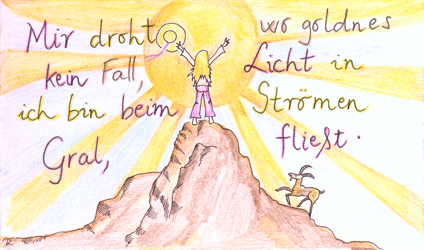 Mir droht
kein Fall,
ich bin beim
Gral,
wo goldnes
Licht in
Strömen
fließt.